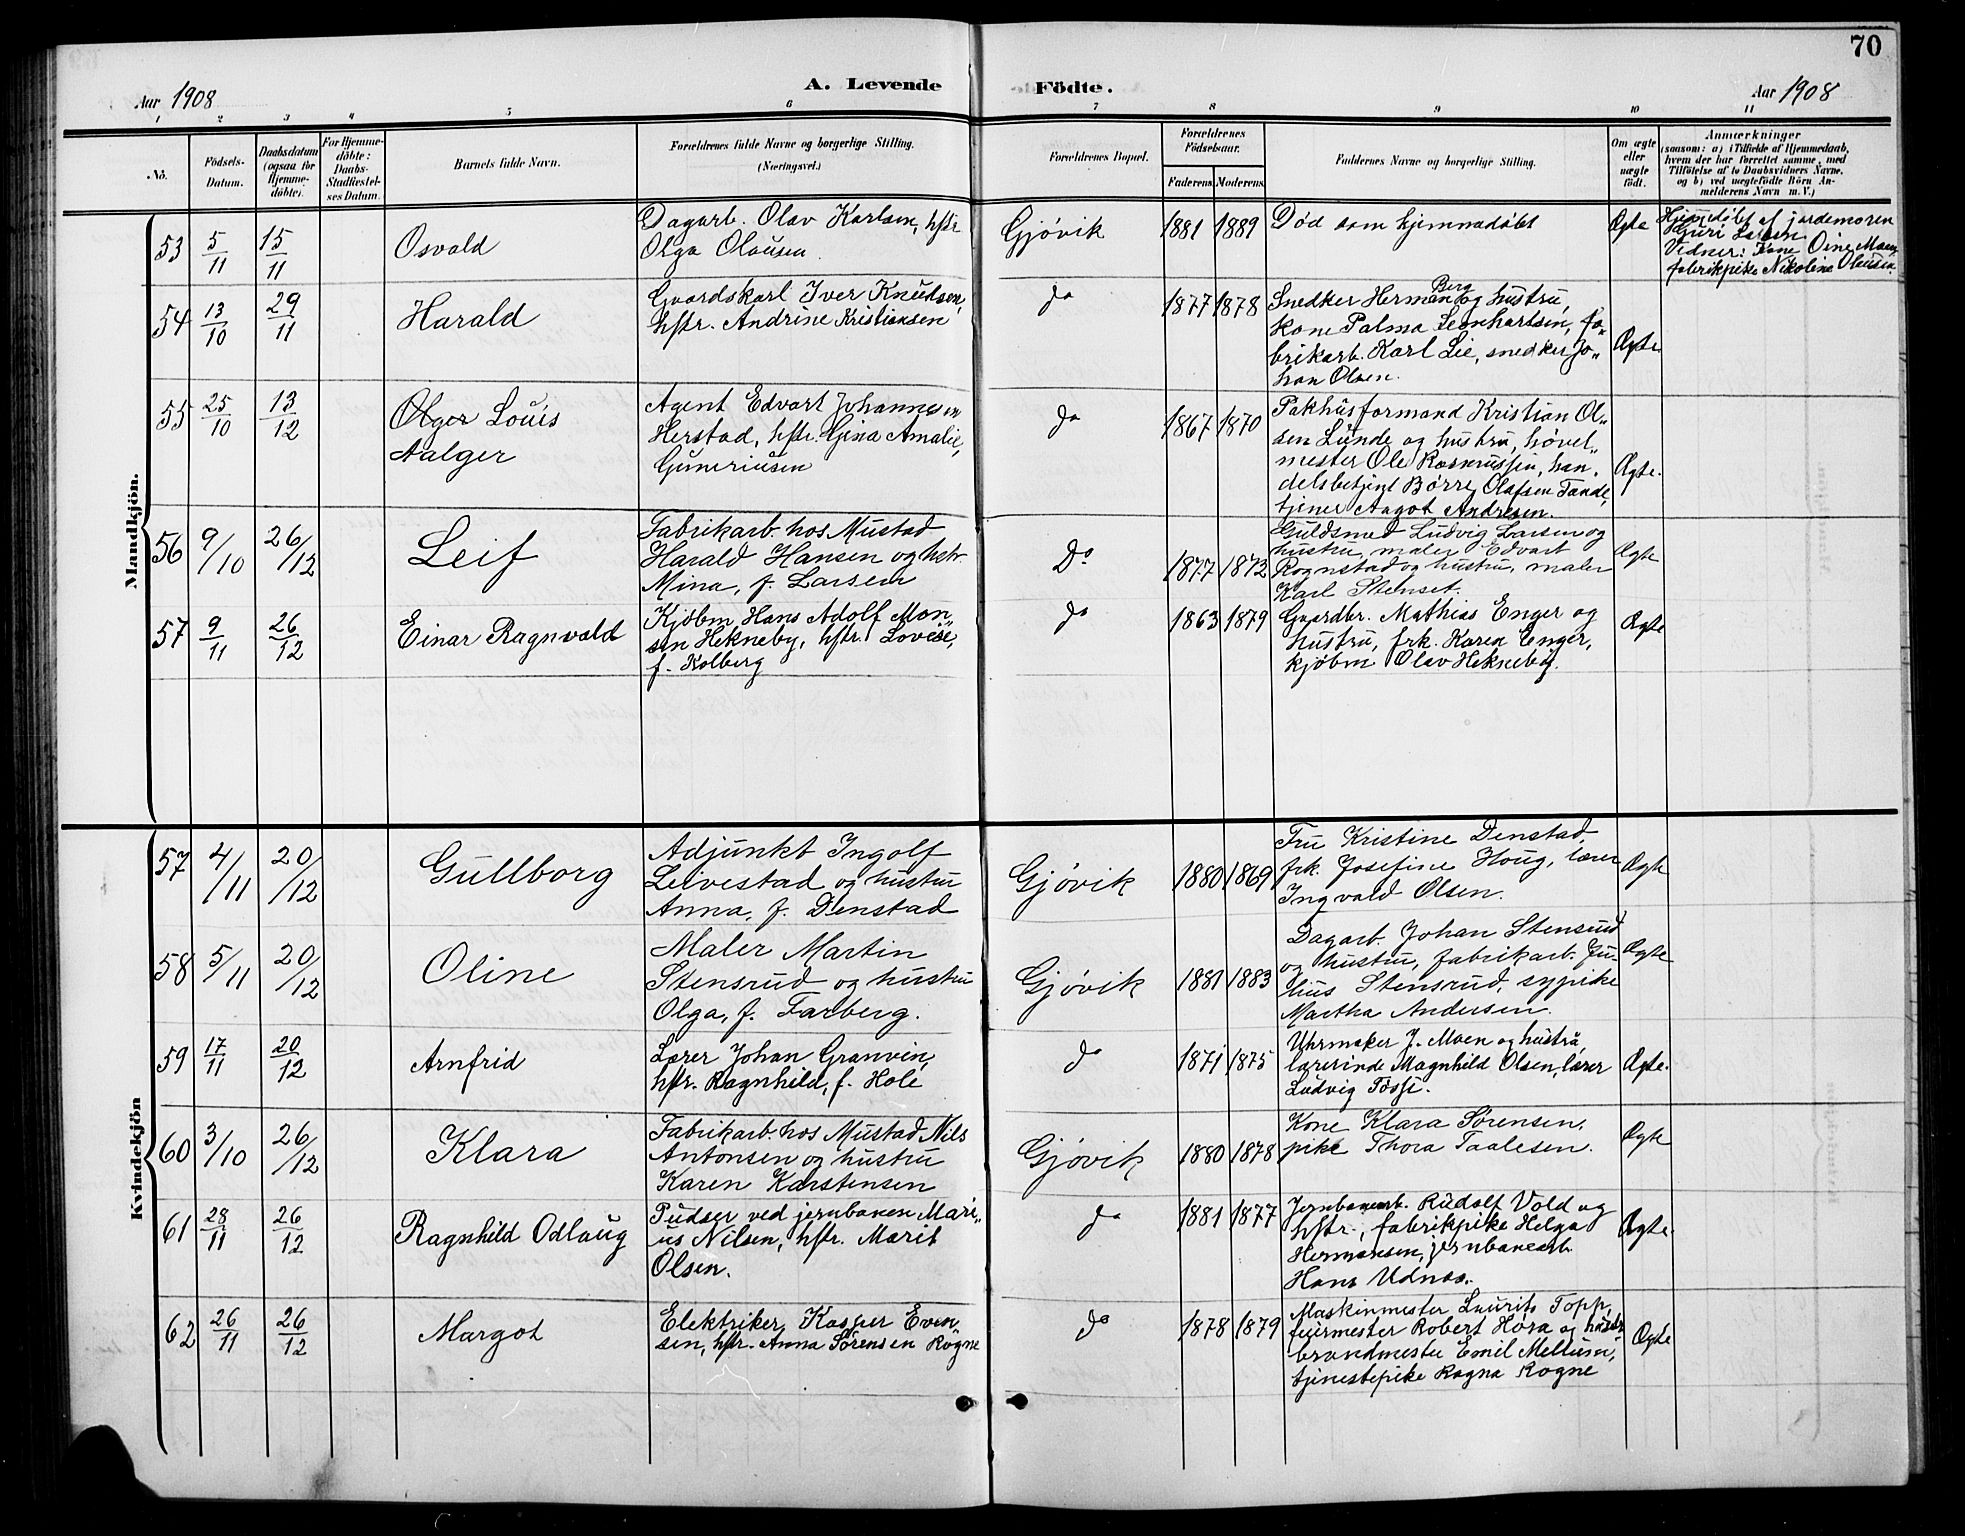 70
Aar 1908
A. Levende
Födte.
Aar 1908
1 2 3 4 5 6 7 8 9 10 11
No.
Födsels-
Datum.
Daabsdatum
(ogsaa for
Hjemme-
døbte).
For Hjemme-
døbte:
Daabs-
Stadfæstel-
ses Datum.
Barnets fulde Navn.
Forældrenes fulde Navne og borgerlige Stilling.
(Næringsvei.)
Forældrenes Bopæl.
Forældrenes
Födselsaar.
Faderens.
Moderens.
Faddernes Navne og borgerlige Stilling.
Om ægte
eller
uægte
født.
Anmærkninger
(saasom: a) i Tilfælde af Hjemmedaab,
hvem der har forrettet samme, med
Tilföielse af to Daabsvidners Navne,
og b) ved uægtefødte Börn An-
melderens Navn m. V.)
Mandkjön.
53 5/11 15/11 Osvald
Dagarb. Olav Karlsen, hstr.
Olga Olausen
Gjøvik 1881 1889 Død som hjemmedøbt Ægte
Hjemmedøbt af jordemoren
Guri Larsen
Vidner: Kone Oine Moen,
fabrikpike Nikoline Olausen
54 13/10 29/11 Harald
Gaardskarl Iver Knudsen,
hstr. Andrine Kristiansen
do 1877 1878
Berg
Snedker Herman og hustru,
kone Palma Leonhartsen, fa-
brikarb. Karl Lie, snedker Jo-
han Olsen.
Ægte.
55 25/10 13/12 Olger Louis
Aalger
Agent Edvart Johannesen
Herstad, hstr. Gina Amalie,
Guneriusen
do 1867 1870
Pakhusformand Kristian Ol-
sen Lunde og hustru, høvel-
mester Ole Rasmussen, han-
delsbetjent Børre Olafsen Tande,
tjener Aagot Andresen.
Ægte.
56 9/10 26/12 Leif
Fabrikarb. hos Mustad
Harald Hansen og hstr.
Mina, f. Larsen
Do 1877 1872
Guldsmed Ludvig Larsen og
hustru, maler Edvart
Rognstad og hustru, maler
Karl Stenset.
Ægte
57 9/11 26/12 Einar Ragnvald
Kjøbm. Hans Adolf Mon-
sen Hekneby, hstr. Lovise,
f. Kolberg
do 1863 1879
Gaardbr. Mathias Enger og
hustru, frk. Karen Enger,
kjøbm Olav Hekneby.
Ægte
Kvindekjön
57 4/11 20/12 Gullborg
Adjunkt Ingolf
Leivestad og hustru
Anna, f. Denstad
Gjøvik 1880 1869
Fru Kristine Denstad,
frk. Josefine Houg, lærer
Ingvald Olsen.
Ægte
58 5/11 20/12 Oline
Maler Martin
Stensrud og hustru
Olga, f. Farberg.
Gjøvik 1881 1883
Dagarb. Johan Stensrud
og hustru, fabrikarb. Ju-
lius Stensrud, sypike
Martha Andersen.
Ægte
59 17/11 20/12 Arnfrid
Lærer Johan Granvin,
hstr. Ragnhild, f. Hole
do 1871 1875
Uhrmaker J. Moen og hustru,
lærerinde Magnhild Olsen, lærer
Ludvig Fosse.
Ægte.
60 3/10 26/12 Klara
Fabrikarb. hos Mustad Nils
Antonsen og hustru
Karen Karstensen
Gjøvik 1880 1878
Kone Klara Sørensen,
pike Thora Taalesen.
Ægte
61 28/11 26/12 Ragnhild Odlaug
Pudser ved jernbanen Mari-
us Nilsen, hstr. Marit
Olsen.
do 1881 1877
Jernbanearb. Rudolf Vold og
hstr., fabrikpike Helga
Hermansen, jernbanearb.
Hans Udnæs.
Ægte.
62 26/11 26/12 Margot
Elektriker Kasper Even-
sen, hstr. Anna Sørensen Rogne
do 1878 1879
Maskinmester Laurits Topp,
feiermester Robert Høra og hustr
brandmester Emil Mellum,
tjenestepike Ragna Rogne
Ægte